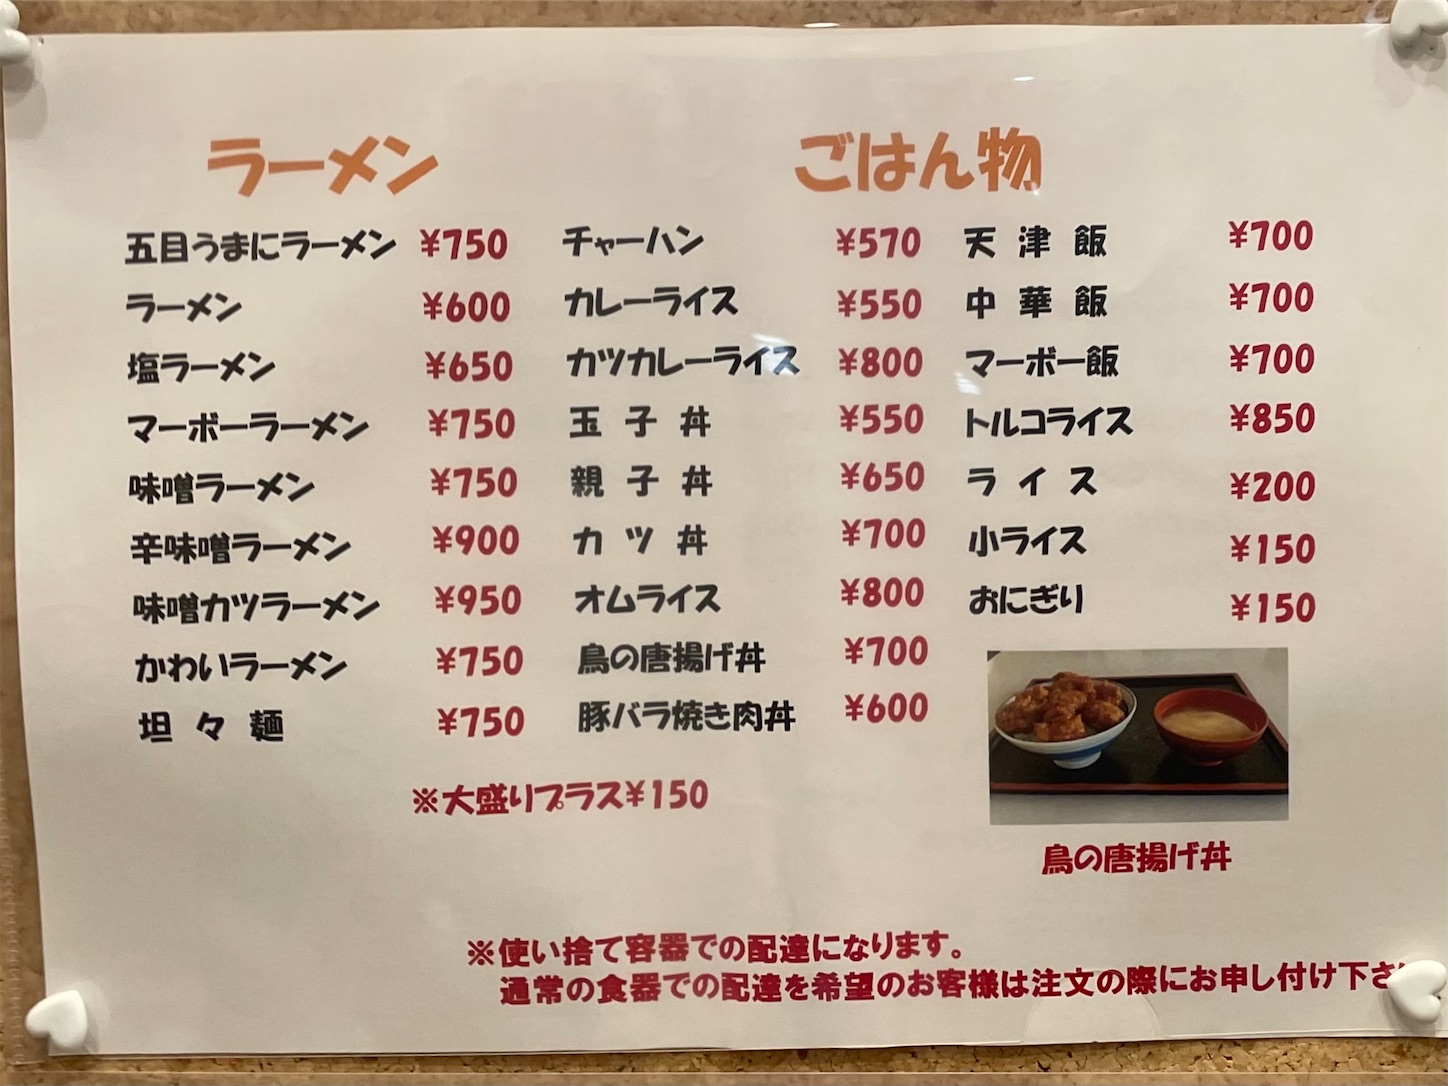 ラーメン
五目うまにラーメン ¥750
ラーメン ¥600
塩ラーメン ¥650
マーボーラーメン ¥750
味噌ラーメン ¥750
辛味噌ラーメン ¥900
味噌カツラーメン ¥950
かわいラーメン ¥750
坦々麺 ¥750
ごはん物
チャーハン ¥570
カレーライス ¥550
カツカレーライス ¥800
玉子丼 ¥550
親子丼 ¥650
カツ丼 ¥700
オムライス ¥800
鳥の唐揚げ丼 ¥700
豚バラ焼き肉丼 ¥600
天津飯 ¥700
中華飯 ¥700
マーボー飯 ¥700
トルコライス ¥850
ライス ¥200
小ライス ¥150
おにぎり ¥150
※大盛りプラス¥150
鳥の唐揚げ丼
※使い捨て容器での配達になります。
通常の食器での配達を希望のお客様は注文の際にお申し付け下さ